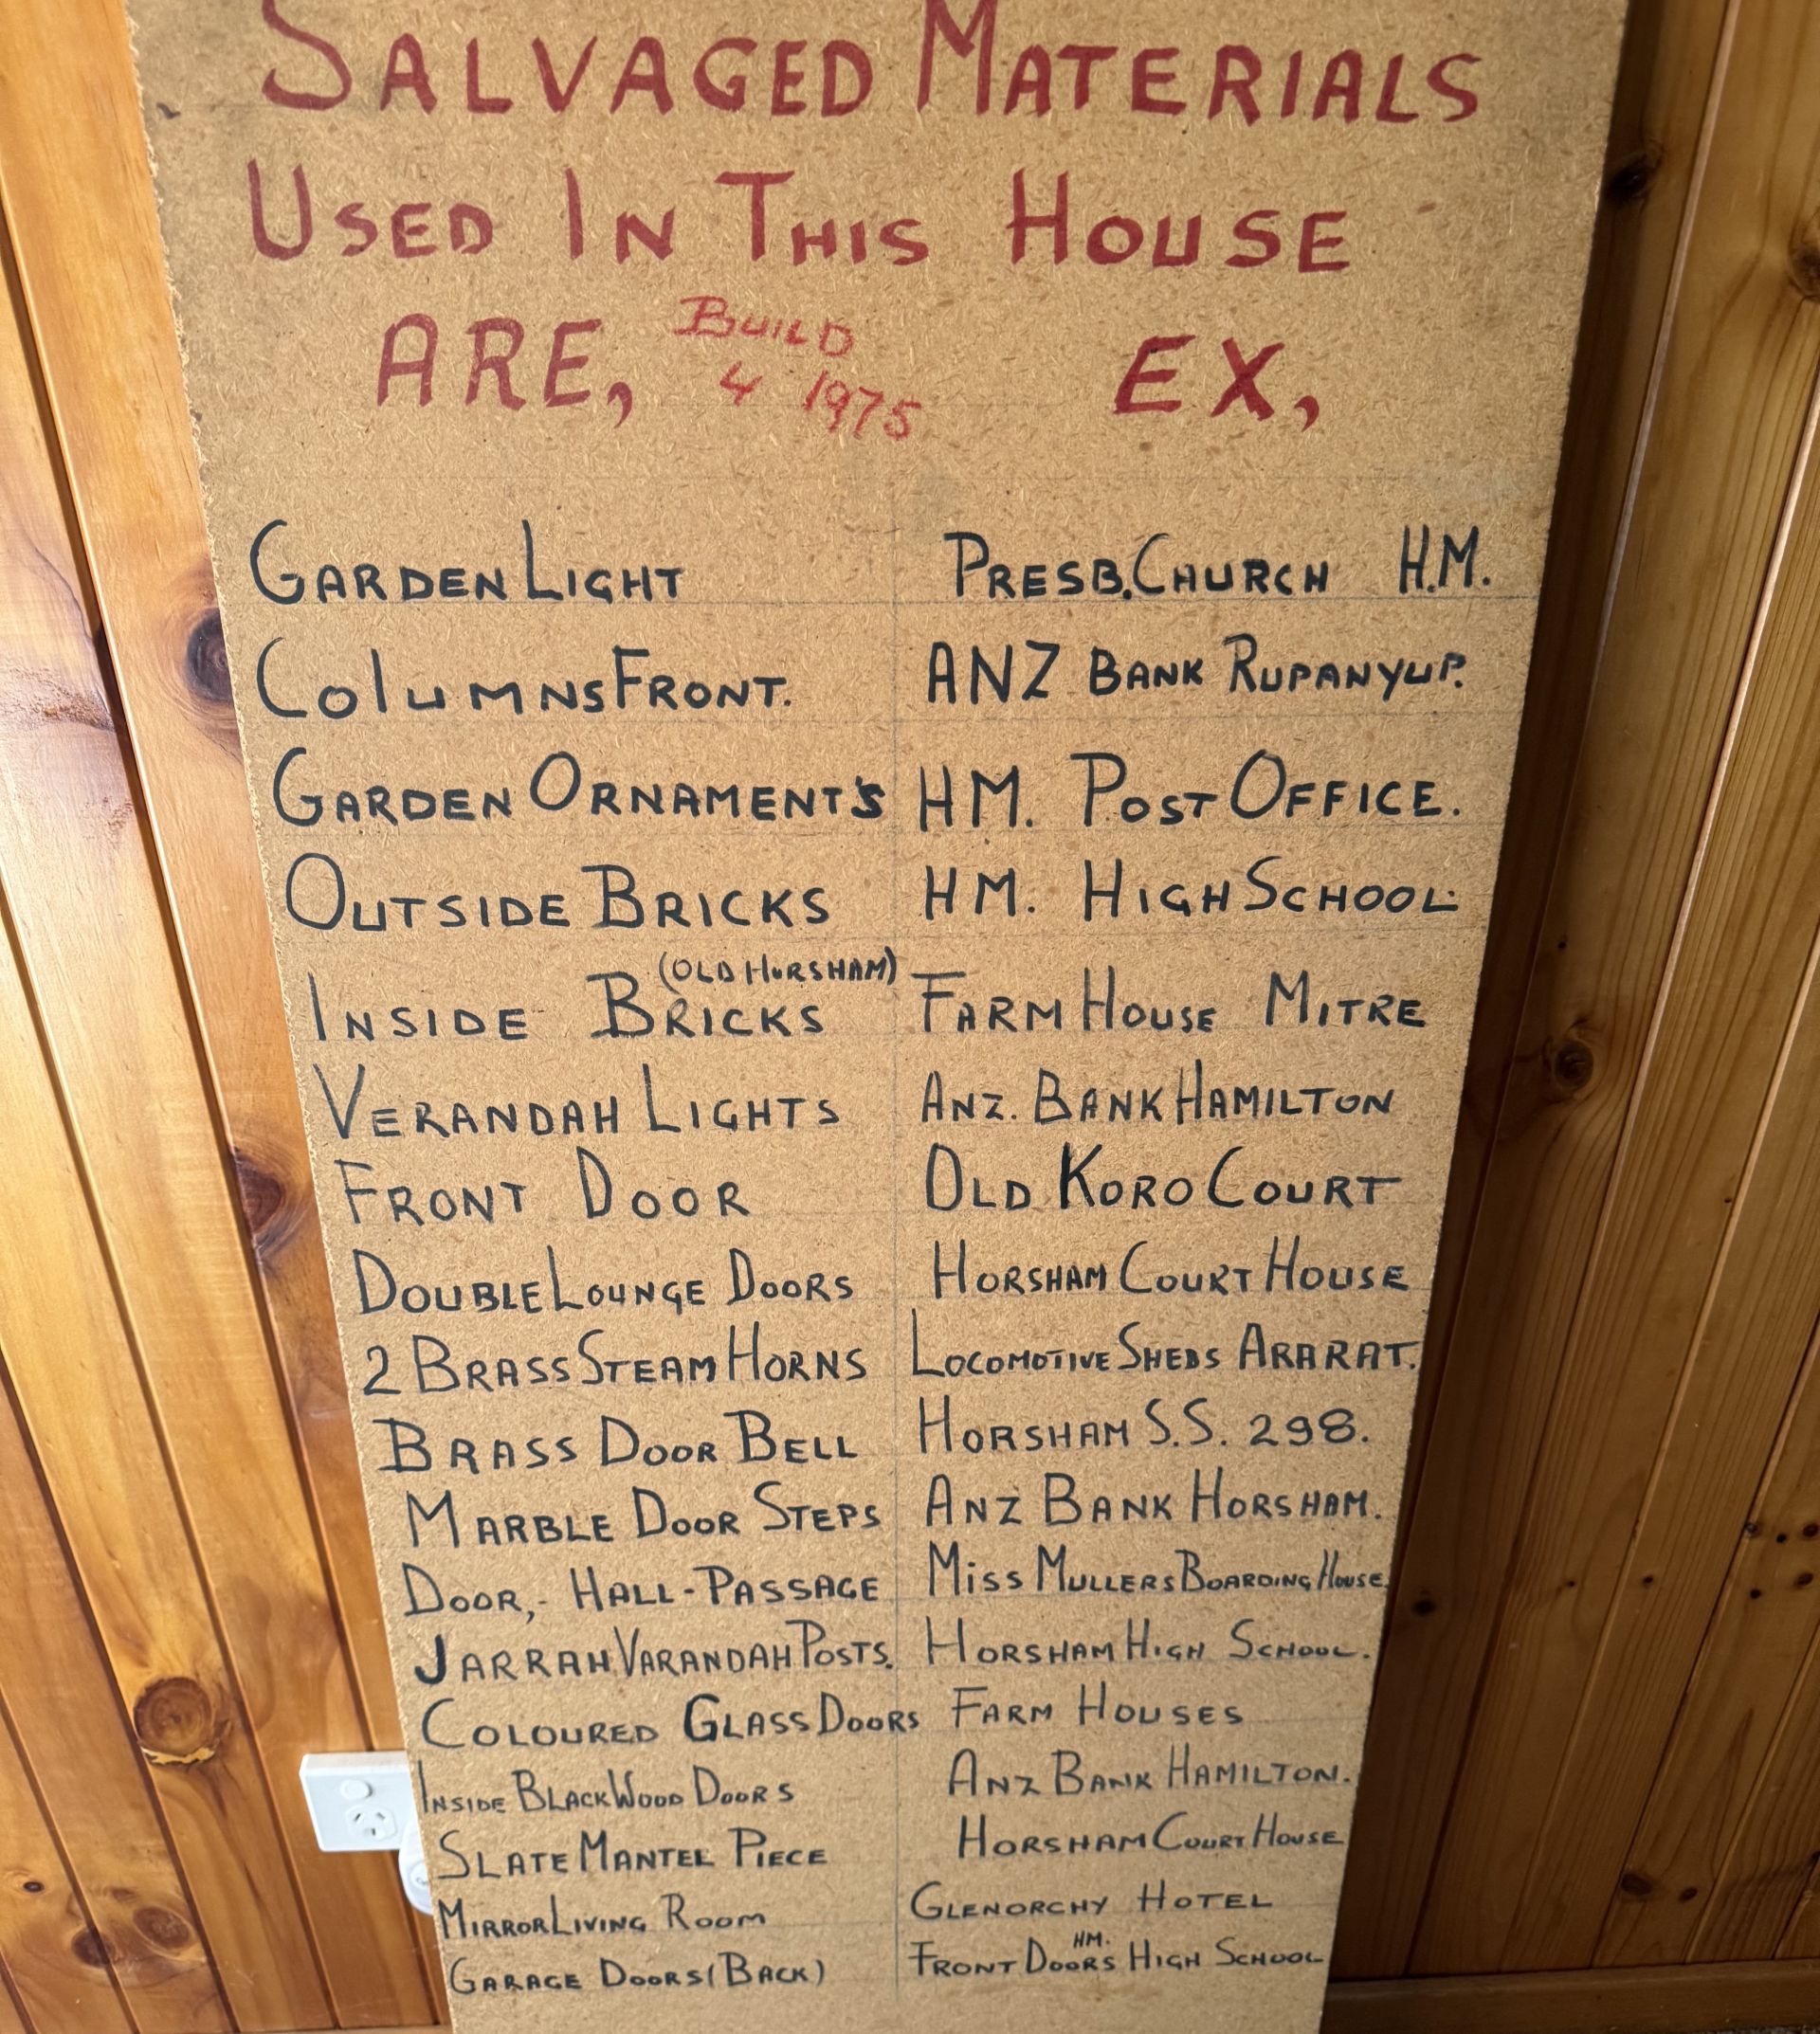 SALVAGED MATERIALS
USED IN THIS HOUSE
ARE, BUILD EX,
4 1975
GARDEN LIGHT PRESB. CHURCH H.M.
COlUMNS FRONT. ANZ BANK RUPANYUP.
GARDEN ORNAMENT'S HM. POST OFFICE.
OUTSIDE BRICKS HM. HIGH SCHOOL.
(OLD HORSHAM)
INSIDE BRICKS FARM HOUSE MITRE
VERANDAH LIGHTS ANZ. BANK HAMILTON
FRONT DOOR OLD KORO COURT
DOUBLE LOUNGE DOORS HORSHAM COURT HOUSE
2 BRASS STEAM HORNS LOCOMOTIVE SHEDS ARARAT.
BRASS DOOR BELL HORSHAM S.S. 298.
MARBLE DOOR STEPS ANZ BANK HORSHAM.
DOOR,- HALL-PASSAGE MISS MULLERS BOARDING HOUSE.
JARRAH VARANDAH POSTS. HORSHAM HIGH SCHOOL.
COLOURED GLASS DOORS FARM HOUSES
INSIDE BLACKWOOD DOORS ANZ BANK HAMILTON.
SLATE MANTEL PIECE HORSHAM COURT HOUSE
MIRROR LIVING ROOM GLENORCHY HOTEL
HM.
GARAGE DOORS (BACK) FRONT DOORS HIGH SCHOOL